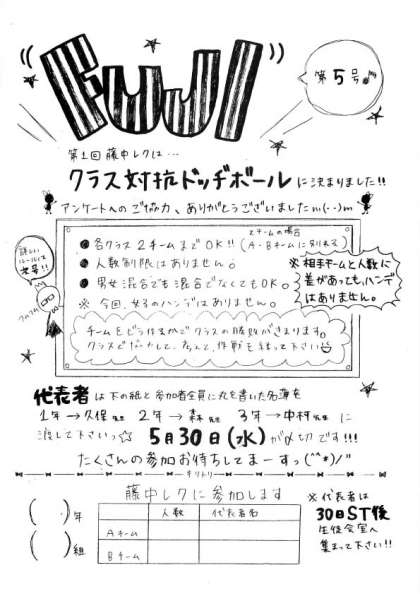 FUJI
第5号
第1回藤中レクは…
クラス対抗ドッヂボールに決まりました!!
アンケートへのご協力、ありがとうございましたm(--)m
2チームの場合
●各クラス2チームまでOK!!(A・Bチームに別れる)
●人数制限はありません。
●男女混合でも混合でなくてもOK。
※今回、女子のハンデはありません。
詳しいルールは次号!!
※相手チームと人数に
差があっても、ハンデ
はありません。
チームをどう
クラスの勝敗がきまります。
クラスで
作戦を練って下さい
代表者は下の紙と参加者全員に丸を書いた名簿を
1年→久保先生 2年→森先生 3年→中村先生に
渡して下さいっ☆ 5月30日(水)が〆切です!!!
たくさんの参加お待ちしてまーすっ(^^*)/"
キリトリ
藤中レクに参加します
( )年
( )組
人数 代表者名
Aチーム
Bチーム
※代表者は
30日ST後
生徒会室へ
集まって下さい!!